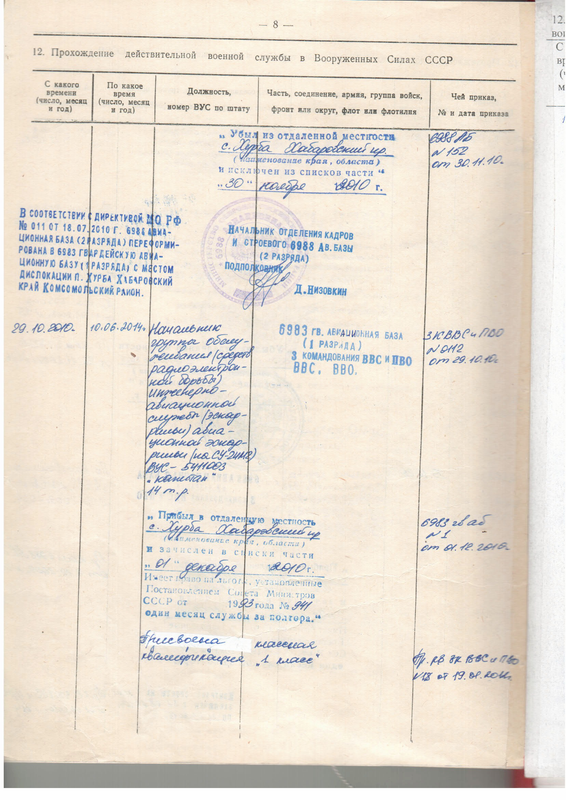 — 8 —
12. Прохождение действительной военной службы в Вооруженных Силах СССР
С какого времени (число, месяц и год)
По какое время (число, месяц и год)
Должность,
номер ВУС по штату
Часть, соединение, армия, группа войск,
фронт или округ, флот или флотилия
Чей приказ,
№ и дата приказа
„ Убыл из отдаленной местности
с. Хурба Хабаровский кр.
(наименование края, области)
и исключен из списков части “
„30“ ноября 2010 г.
6988 АБ
N 152
от 30.11.10г.
В СООТВЕТСТВИИ С ДИРЕКТИВОЙ МО РФ
№ 011 ОТ 18.07.2010 Г. 6988 АВИА-
ЦИОННАЯ БАЗА (2 РАЗРЯДА) ПЕРЕФОРМИ-
РОВАНА В 6983 ГВАРДЕЙСКУЮ АВИА-
ЦИОННУЮ БАЗУ (1 РАЗРЯДА) С МЕСТОМ
ДИСЛОКАЦИИ П. ХУРБА ХАБАРОВСКИЙ
КРАЙ КОМСОМОЛЬСКИЙ РАЙОН.
НАЧАЛЬНИК ОТДЕЛЕНИЯ КАДРОВ
И СТРОЕВОГО 6988 АВ. БАЗЫ
(2 РАЗРЯДА)
ПОДПОЛКОВНИК
Д. НИЗОВКИН
29.10.2010г.
10.06.2014г.
Начальник
группы обслу-
живания (средств
радиоэлектрон-
ной борьбы)
инженерно-
авиационной
службы (эскад-
рильи) авиа-
ционной эскад-
рильи (на СУ-24М2)
ВУС-
„капитан“
14 т.р.
6983 ГВ. АВИАЦИОННАЯ БАЗА
(1 РАЗРЯДА)
3 КОМАНДОВАНИЯ ВВС И ПВО
ВВС, ВВО.
3 К ВВС и ПВО
от 29.10.10г.
„ Прибыл в отдаленную местность
с. Хурба Хабаровский кр
(наименование края, области)
и зачислен в списки части
„01“ декабря 2010 г.
Имеет право на льготы, установленные
Постановлением Совета Министров
СССР от 1993 года № 941
один месяц службы за полтора.“
6983 гв аб
N 1
от 01.12.2010г.
Присвоена классная
квалификация „1 класс“
3К ВВС и ПВО
12.
С